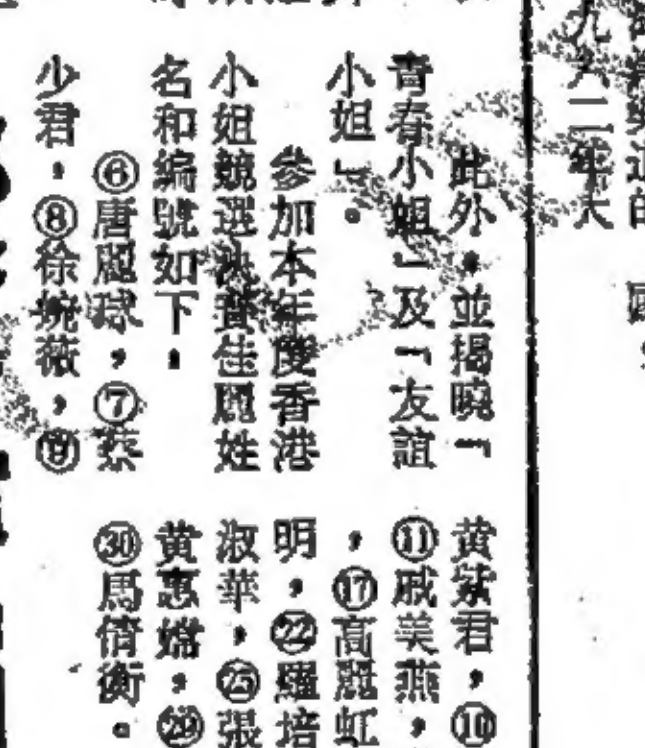 此外，並揭曉「
青春小姐」及「友誼
小姐」。
參加本年度香港
小姐競選決賽佳麗姓
名和編號如下：
⑥唐麗球，⑦蔡
少君，⑧徐婉薇，⑨
黃紫君，⑩
⑪戚美燕，
，⑰高麗虹
明，㉒羅培
淑華，㉕張
黃惠嫦，㉙
㉚馬倩衡。